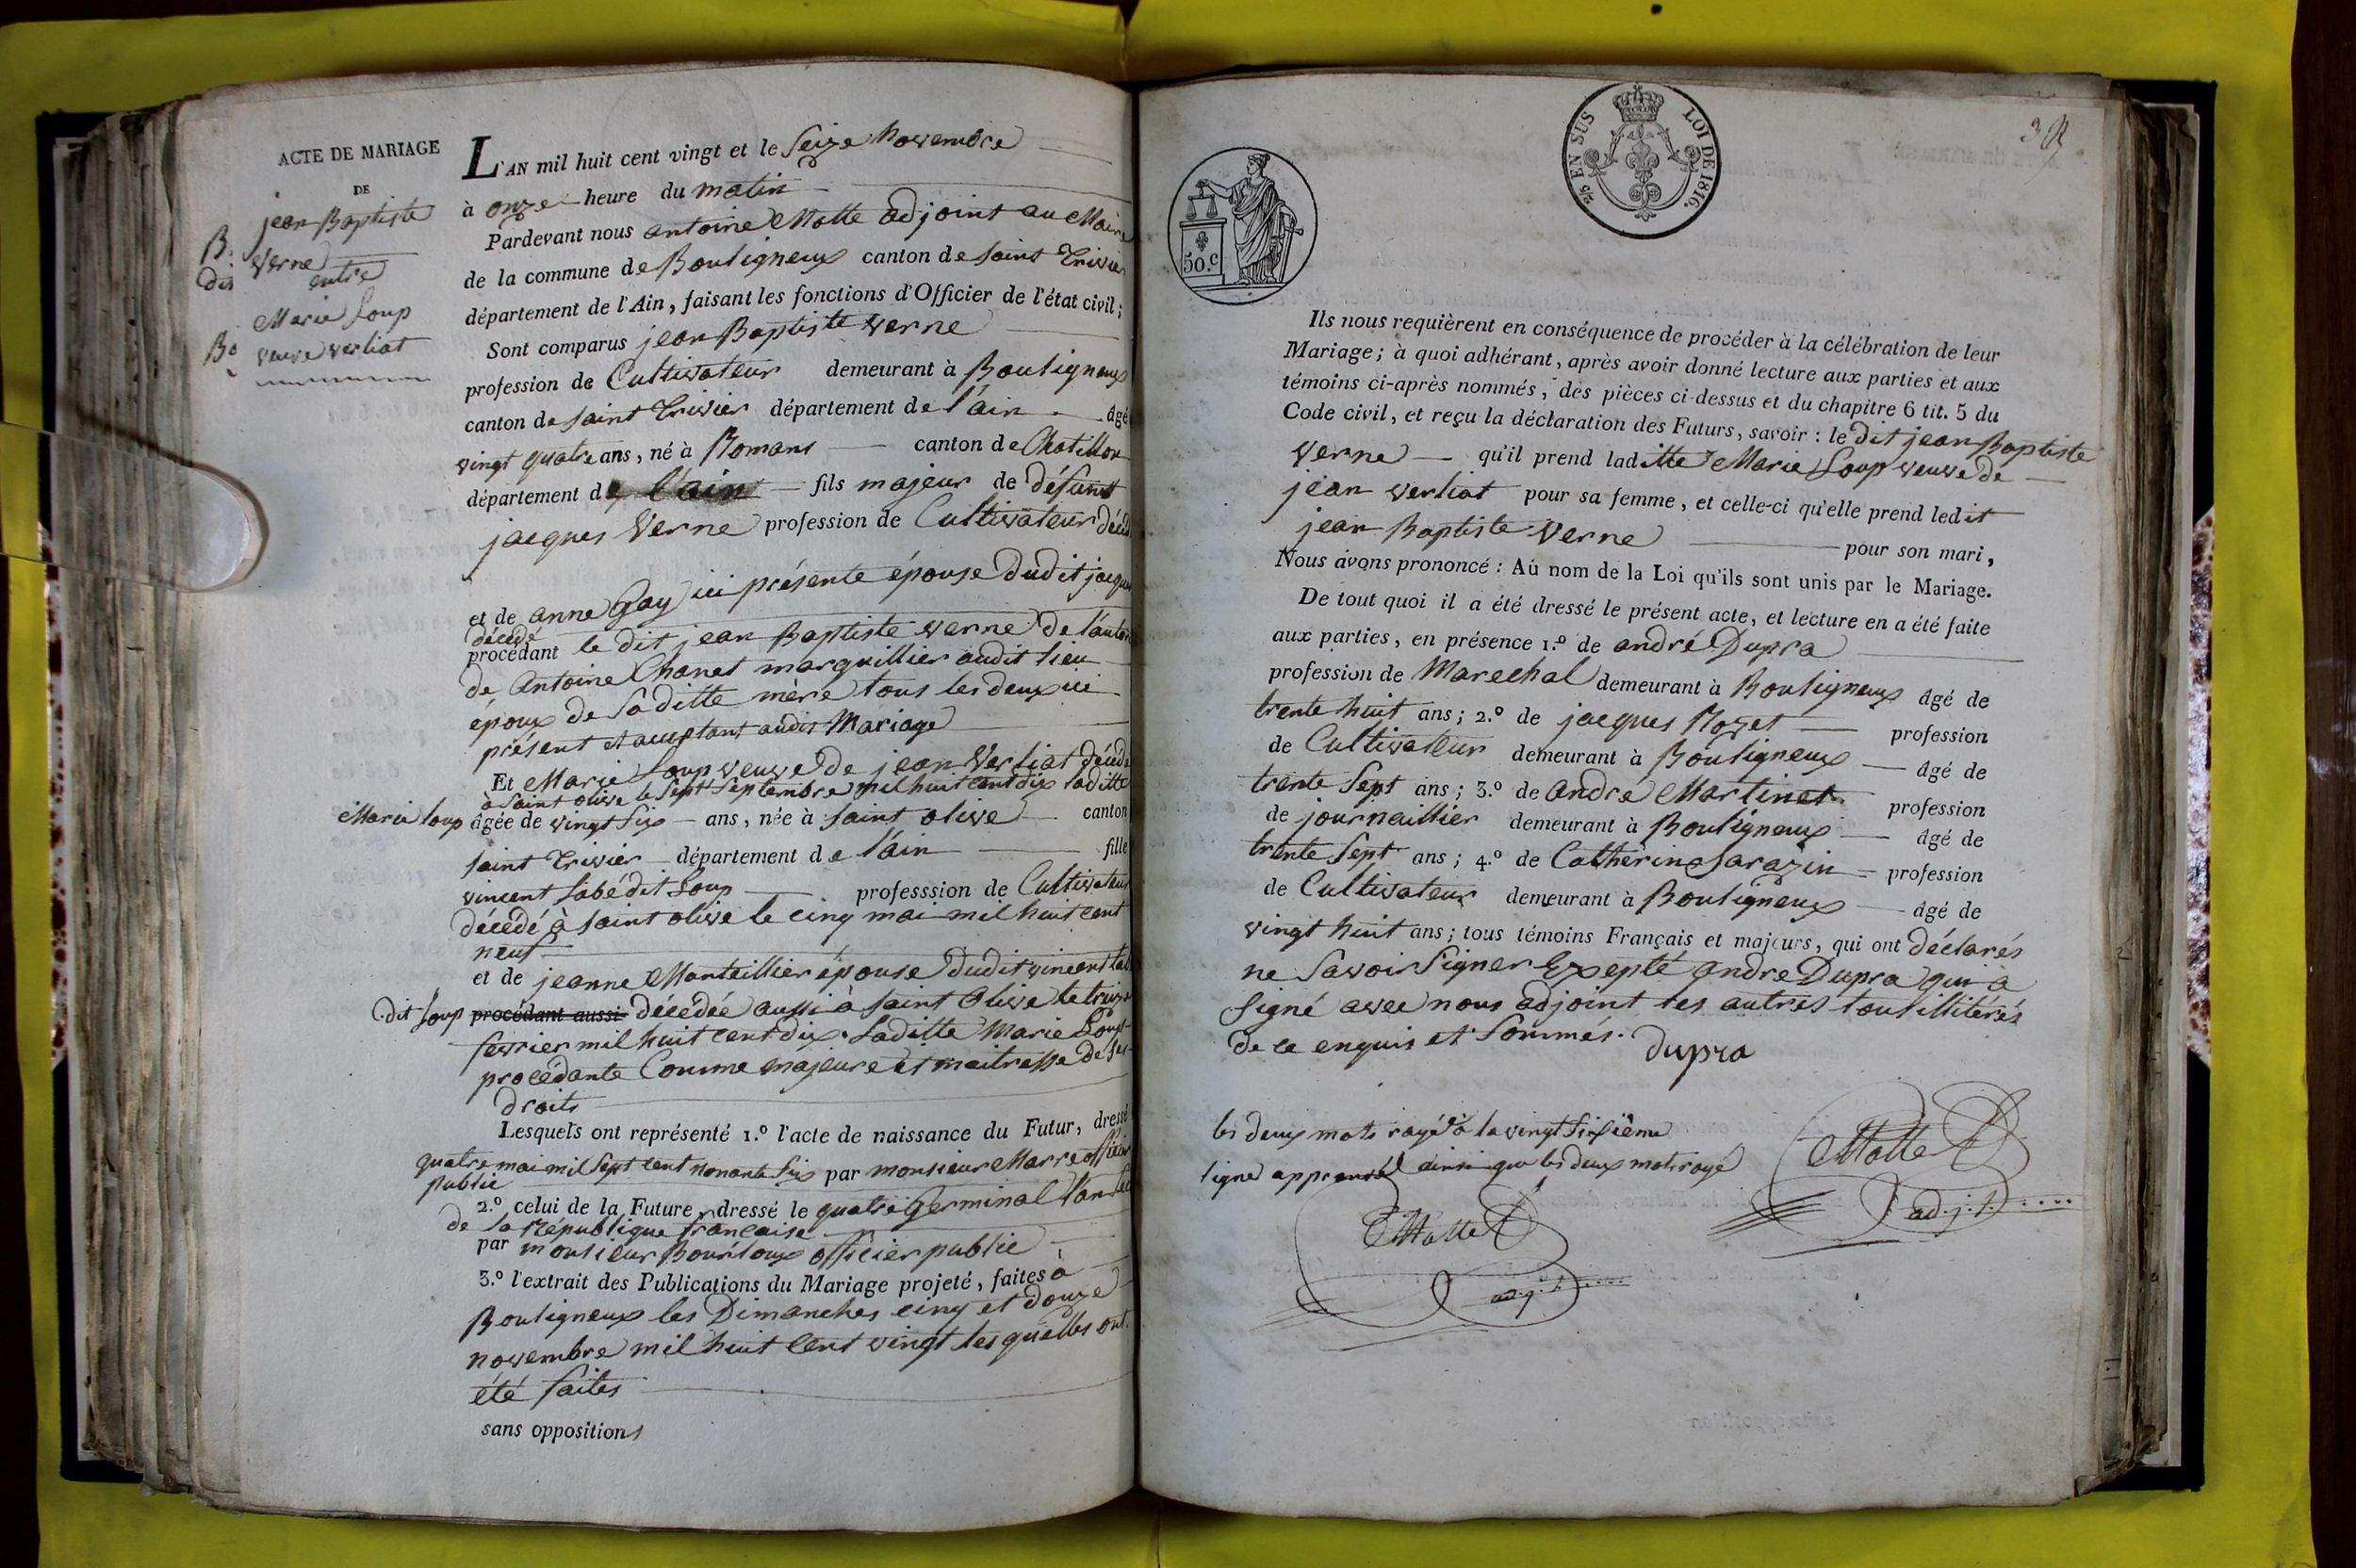 ACTE DE MARIAGE
DE
jean Baptiste
Verne
entre
Marie Loup
veuve verliat
L'AN mil huit cent vingt et le Seize Novembre
à onze heure du matin
Pardevant nous antoine Motte adjoint au Maire
de la commune de Bouligneux canton de saint Trivier
département de l'Ain, faisant les fonctions d'Officier de l'état civil;
Sont comparus jean Baptiste Verne
profession de Cultivateur demeurant à Bouligneux
canton de saint Trivier département de l'ain âgé
vingt quatre ans, né à Romans canton de Chatillon
département de l'ain fils majeur de défunt
jacques Verne profession de Cultivateur décéd
et de anne Gay ici présente épouse dudit jacque
décédé
procédant le dit jean Baptiste Verne de l'autori
de Antoine Chanet marguillier audit lieu
époux de Saditte mère tous les deux ici
présent et acceptant audit Mariage
Et Marie Loup veuve de jean Verliat décédé
à saint olive le sept Septembre mil huit cent dix laditte
Marie loup âgée de vingt six ans, née à saint olive canton
saint Trivier département de l'ain fille
vincent labé dit Loup professsion de Cultivateur
décédé à saint olive le cinq mai mil huit cent
neuf
et de jeanne Monteillier épouse dudit vincent lab
dit Loup procédant aussi décédée aussi à saint Olive le treize
fevrier mil huit cent dix Laditte Marie Loup
procédante Comme majeure et maitresse de ses
droits
Lesquels ont représenté 1.º l'acte de naissance du Futur, dressé
quatre mai mil sept cent nonante six par monsieur Marre officier
public
2.º celui de la Future, dressé le quatre Germinal l'an
de la République francaise
par monsieur Bourloux officier public
3.º l'extrait des Publications du Mariage projeté, faites à
Bouligneux les Dimanches cinq et douze
novembre mil huit cent vingt lesquelles ont
été faites
sans oppositions
50.c
2/5 EN SUS
LOI DE 1816.
Ils nous requièrent en conséquence de procéder à la célébration de leur
Mariage; à quoi adhérant, après avoir donné lecture aux parties et aux
témoins ci-après nommés, des pièces ci-dessus et du chapitre 6 tit. 5 du
Code civil, et reçu la déclaration des Futurs, savoir: le dit jean Baptiste
Verne qu'il prend laditte Marie Loup veuve de
jean verliat pour sa femme, et celle-ci qu'elle prend ledit
jean Baptiste Verne pour son mari,
Nous avons prononcé: Au nom de la Loi qu'ils sont unis par le Mariage.
De tout quoi il a été dressé le présent acte, et lecture en a été faite
aux parties, en présence 1.º de andré Dupra
profession de Marechal demeurant à Bouligneux âgé de
trente huit ans; 2.º de jacques Rozet profession
de Cultivateur demeurant à Bouligneux âgé de
trente Sept ans; 3.º de andre Martinet profession
de journaillier demeurant à Bouligneux âgé de
trente Sept ans; 4.º de Catherin Sarazin profession
de Cultivateur demeurant à Bouligneux âgé de
vingt huit ans; tous témoins Français et majeurs, qui ont déclarés
ne Savoir Signer Exepté andre Dupra qui a
signé avec nous adjoint les autres tout illitérés
de ce enquis et Sommés.
dupra
les deux mots rayé à la vingt sixième
ligne approuvé ainsi que les deux mots rayé
Motte
adj.t
Motte
adj.t